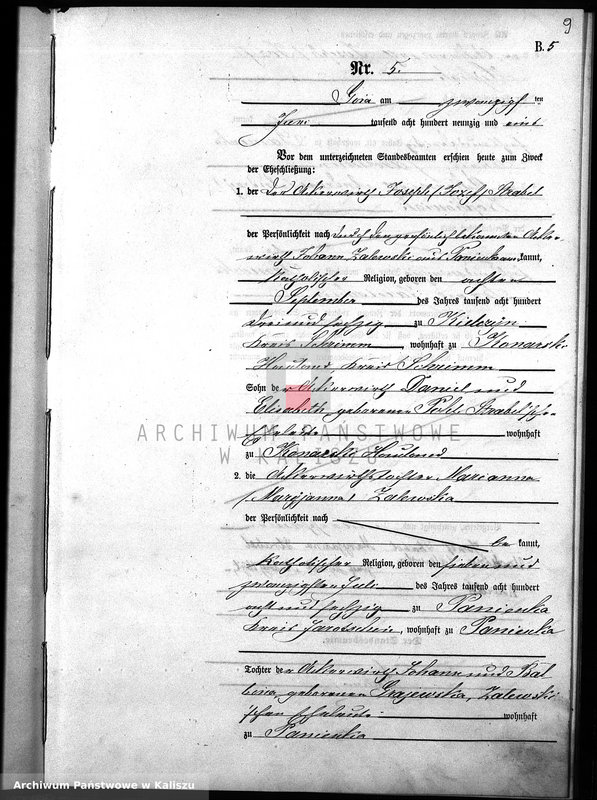 9
B. 5
Nr. 5.
Góra am zwanzigsten
Juni tausend acht hundert neunzig und eins
Vor dem unterzeichneten Standesbeamten erschien heute zum Zweck
der Eheschließung:
1. der Der Ackerwirth Joseph (Jozef) Strabel
der Persönlichkeit nach durch den persönlich bekannten Acker-
wirth Johann Zalewski aus Panienka kannt,
katholischer Religion, geboren den achten
September des Jahres tausend acht hundert
drei und sechzig zu Kielczyn
Kreis Schrimm, wohnhaft zu Konarski
Hauland Kreis Schrimm
Sohn der Ackerwirth Daniel und
Elisabeth geborenen Pohl Strabel'sche
Eheleute wohnhaft
zu Konarski Hauland
ARCHIWUM PAŃSTWOWE
W KALISZU
2. die Ackerwirthstochter Marianna
(Maryjanna) Zalewska
der Persönlichkeit nach
be kannt,
katholischer Religion, geboren den sieben und
zwanzigsten Juli des Jahres tausend acht hundert
acht und sechzig zu Panienka
Kreis Jarotschin, wohnhaft zu Panienka
Tochter der Ackerwirth Johann und Bal
bina geborenen Grajewska, Zalewski
'schen Eheleute wohnhaft
zu Panienka
Archiwum Państwowe w Kaliszu